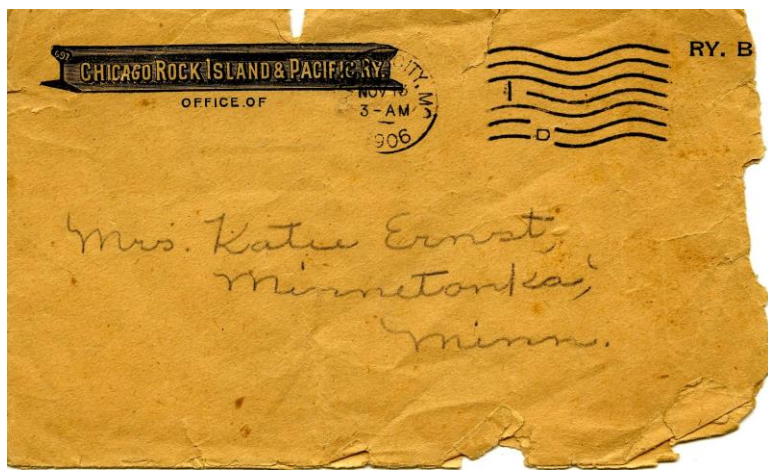 697
CHICAGO ROCK ISLAND & PACIFIC RY.
OFFICE OF
CITY, MO
NOV
3-AM
1906
RY. B
1
D
Mrs. Katie Ernst,
Minnetonka,
Minn.